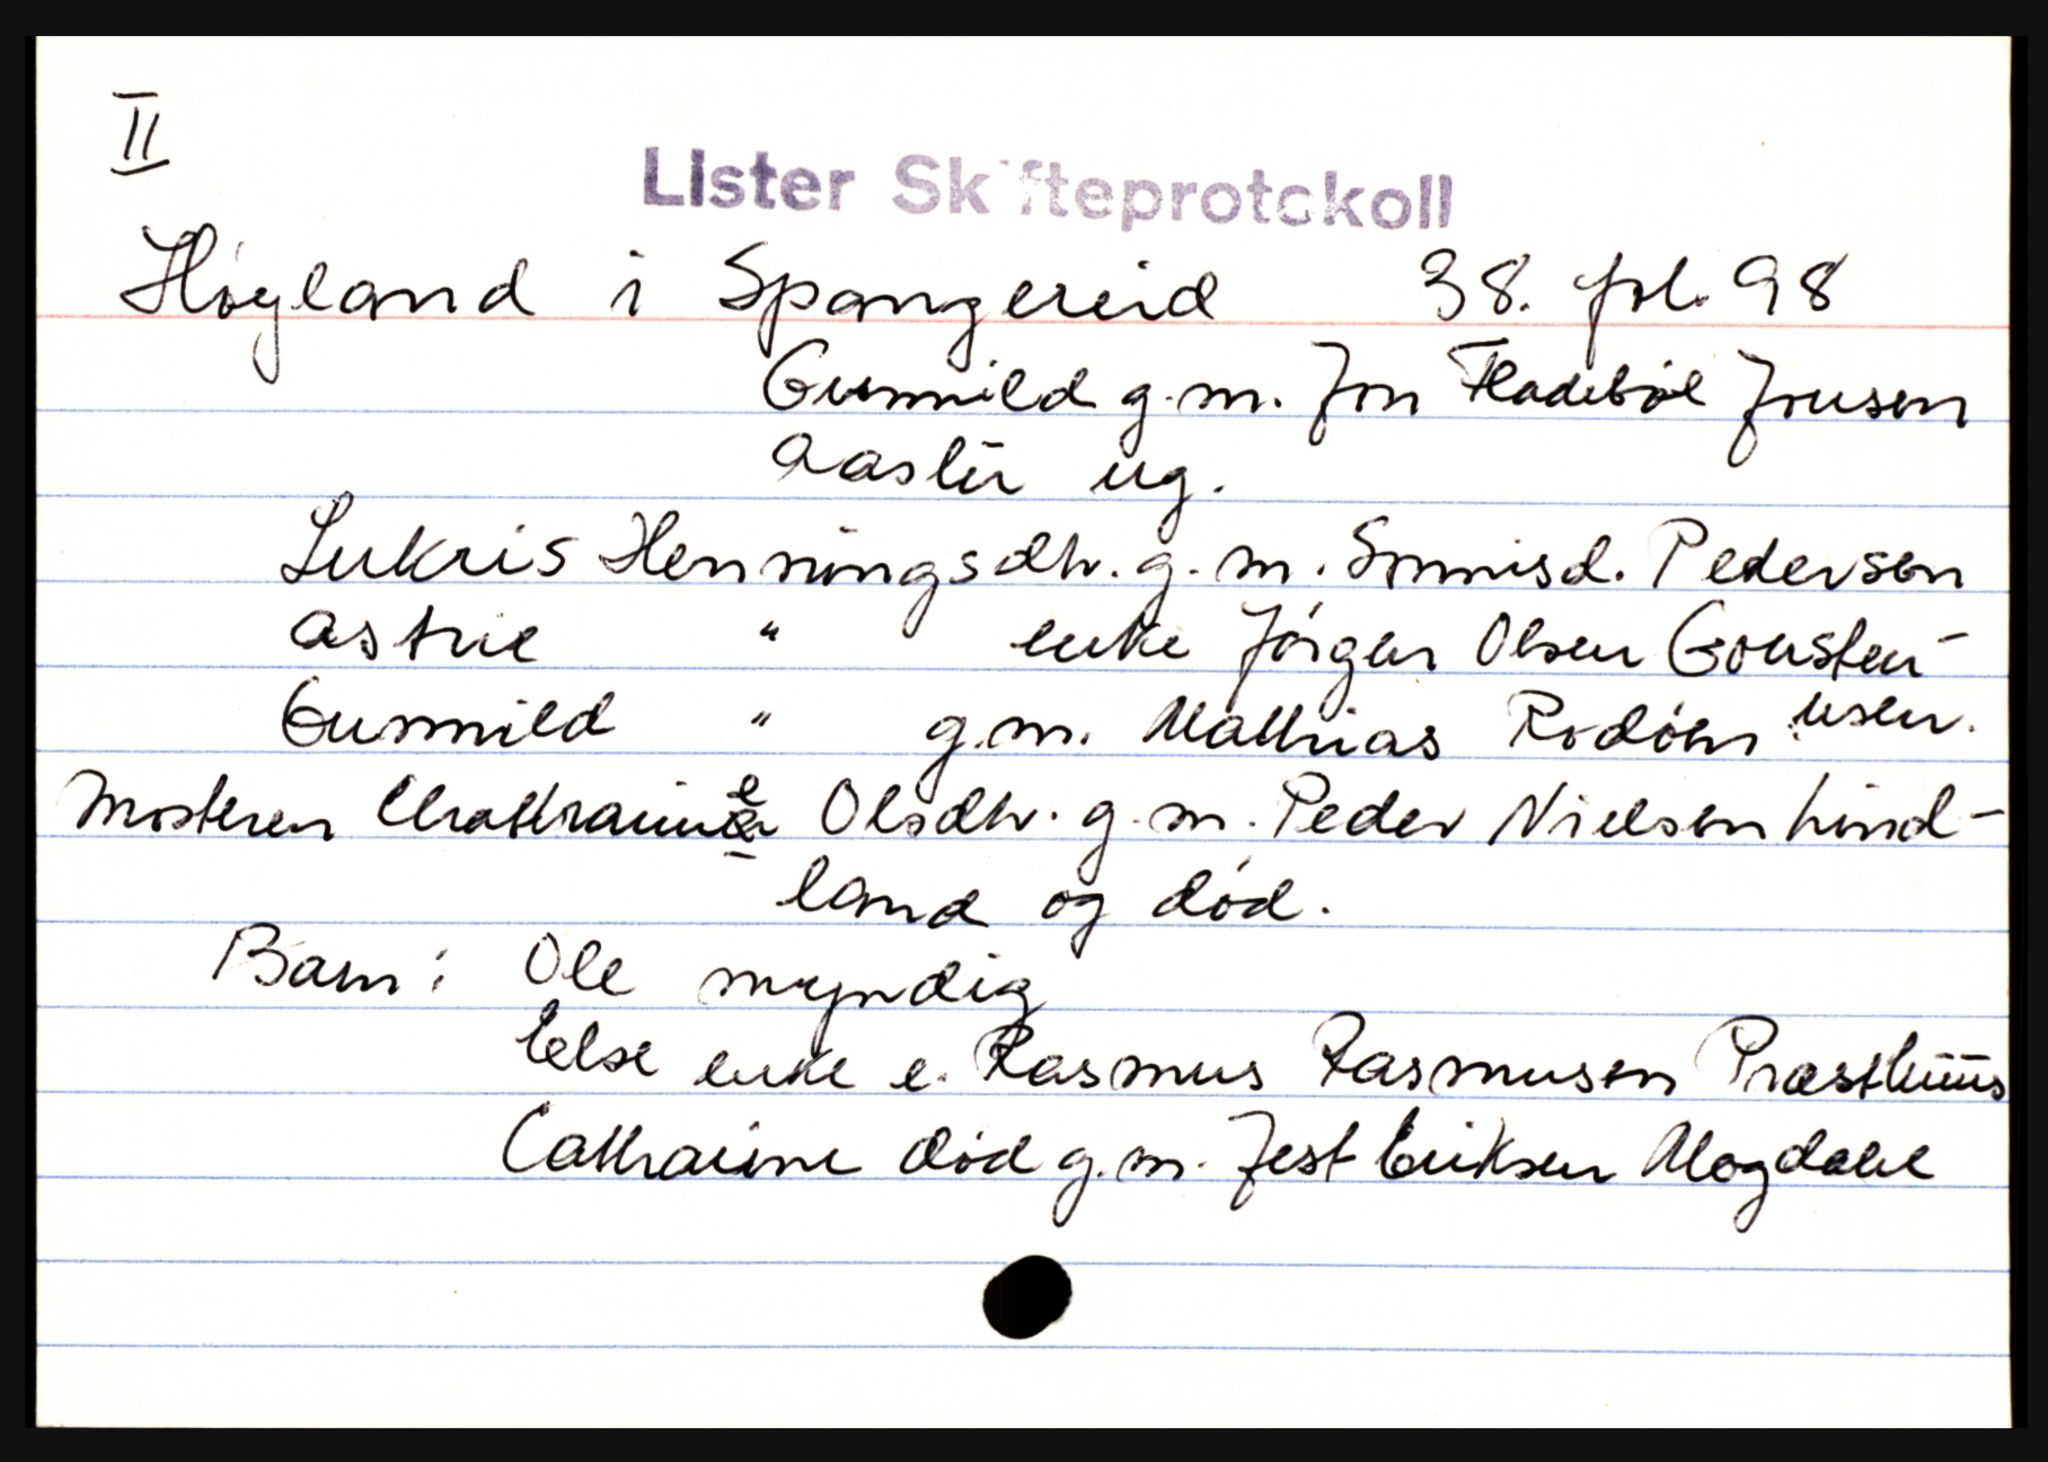 II
Lister Skifteprotokoll
Høyland i Spangereid 38. fol. 98
Gunnild g.m. Jon Fladebøe Jonsen
Aaslir ug.
Lukris Henningsdtr. g.m. Pedersen
Astrie " enke Jörgen Olsen Gousten-
Gunnild " g.m. Mathias Rodöen usen.
Mosteren Chathrarine Olsdtr. g.m. Peder Nielsen Lind-
land og död.
Barn: Ole myndig
Else enke e. Rasmus Rasmusen Præsthuus
Cathraine död g.m. Jest Eriksen Mogdahl